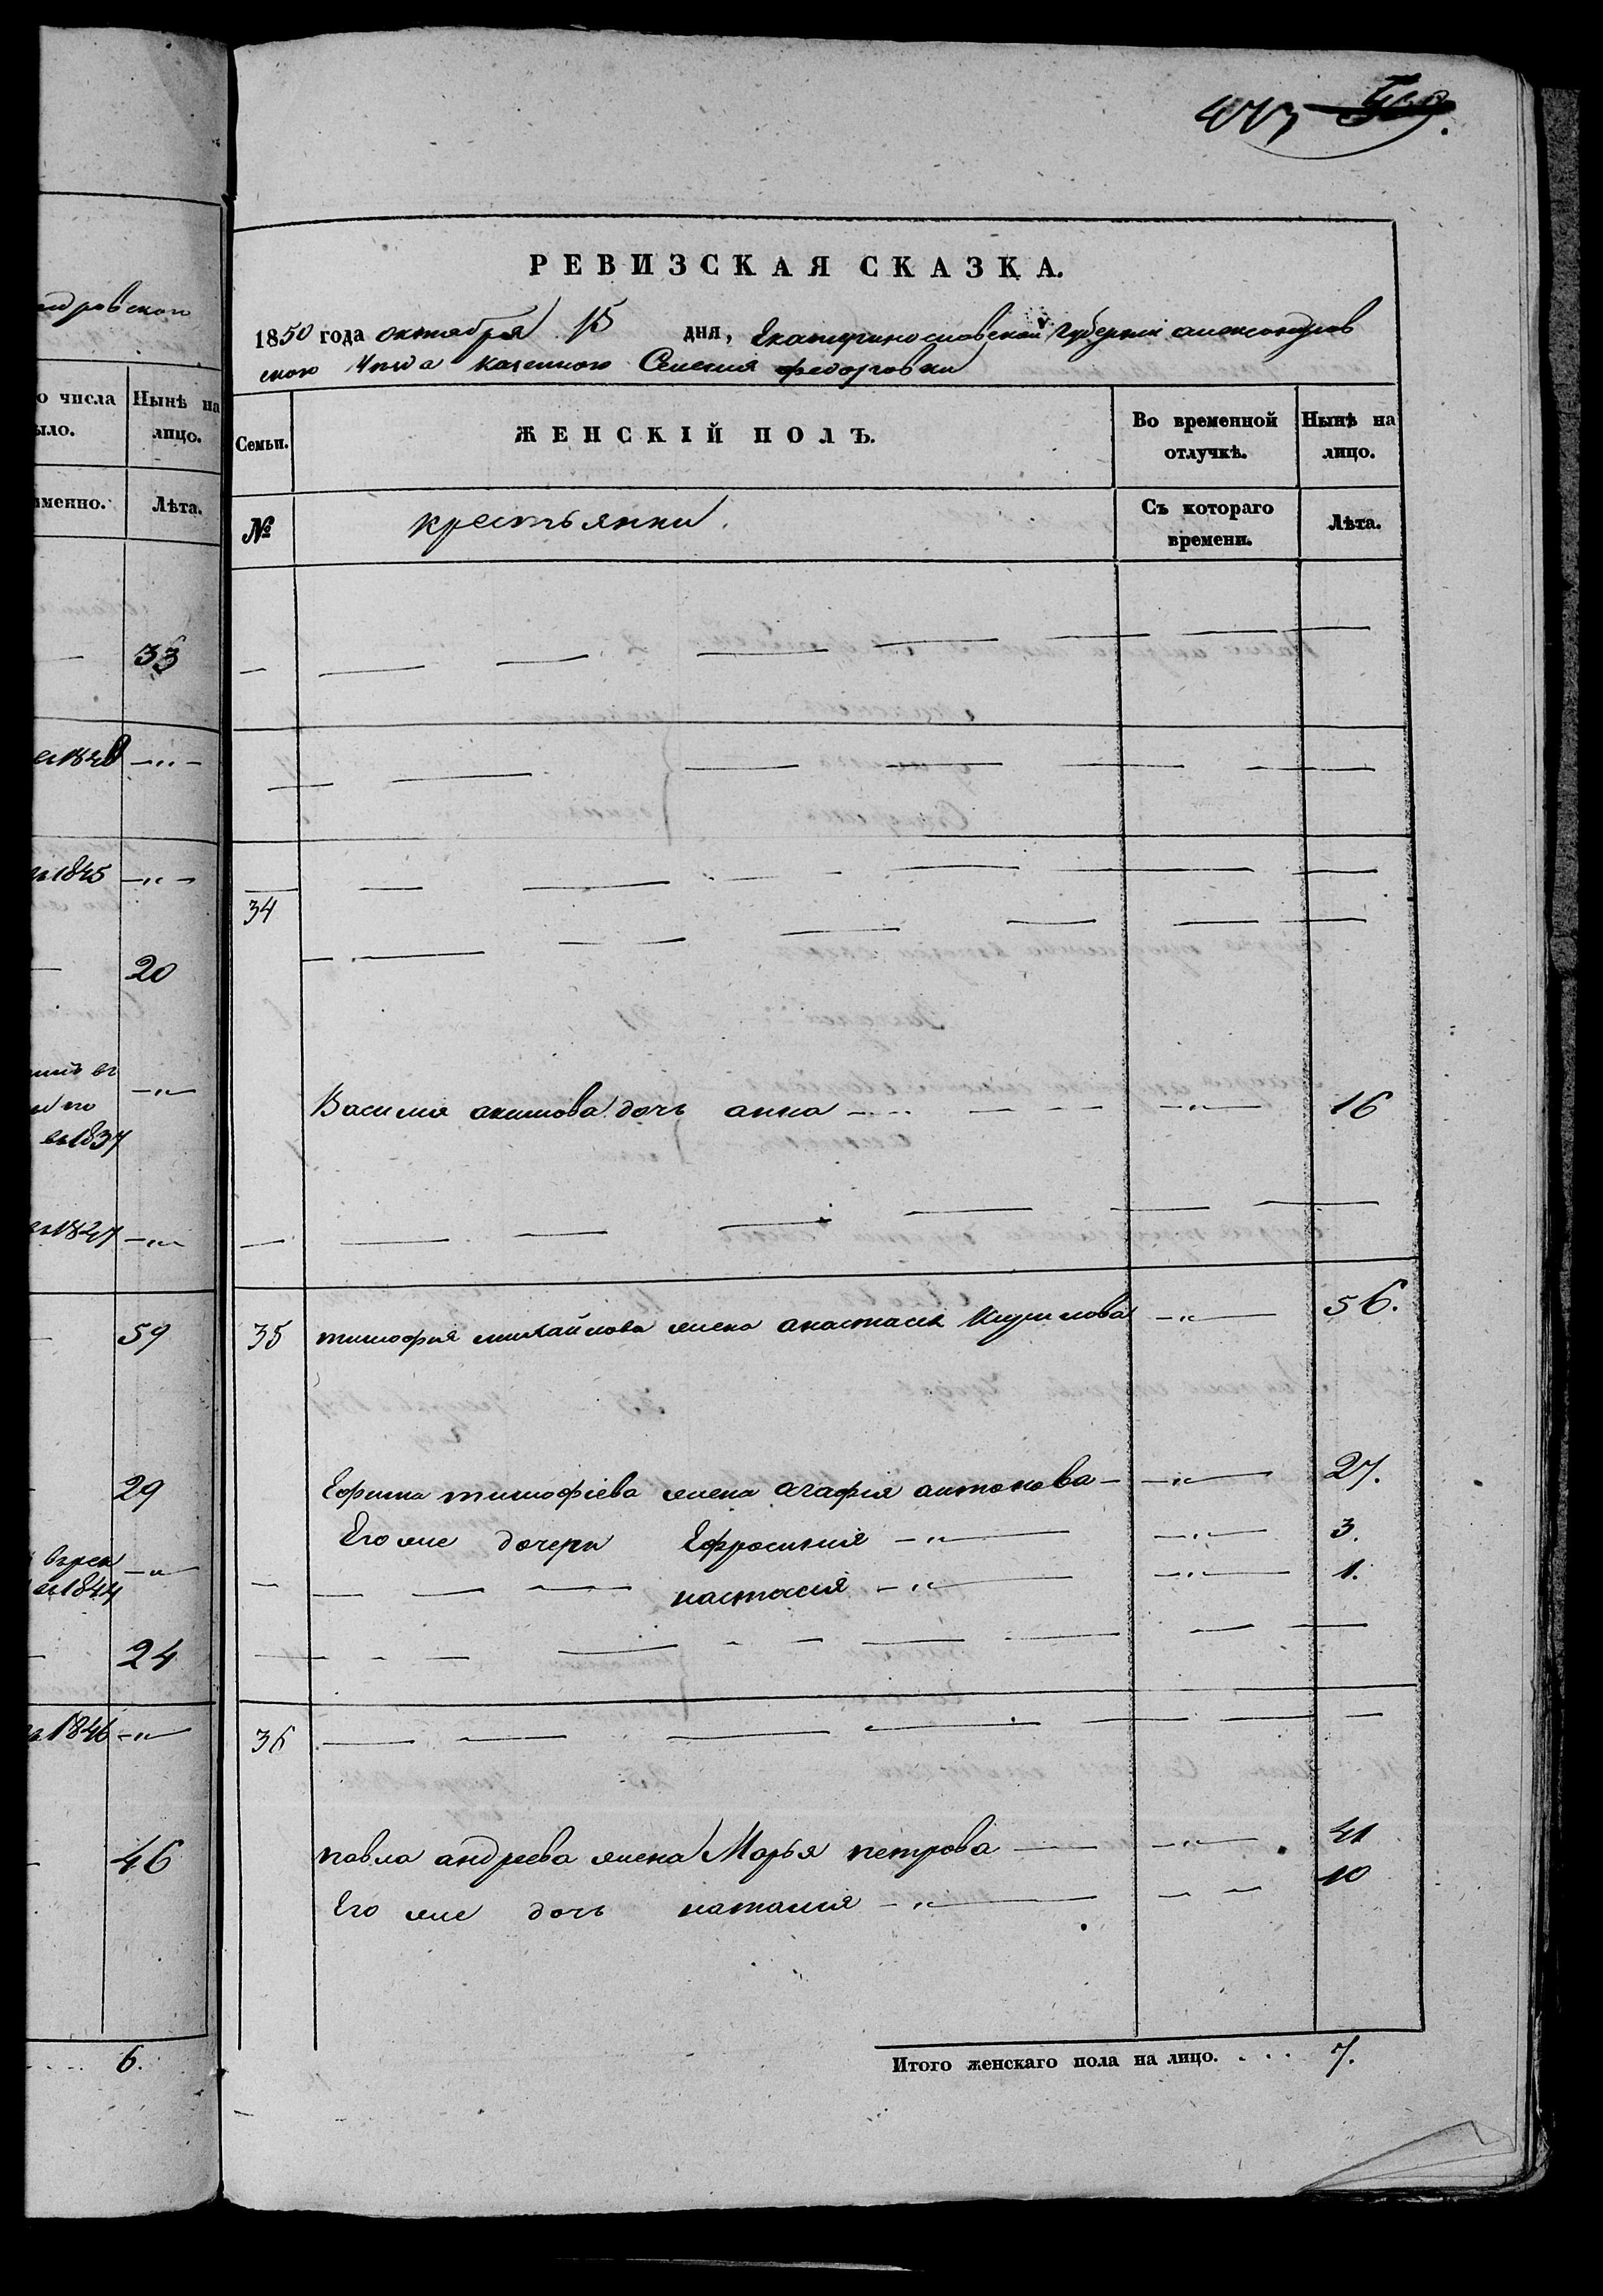 477
РЕВИЗСКАЯ СКАЗКА.
1850 года октября 15 дня, Екатеринославской Губернии александров
ского уезда казенного Селения федоровки
Семьи.
ЖЕНСКІЙ ПОЛЪ.
Во временной отлучкѣ.
Нынѣ на лицо.
№
крестьянки.
Съ котораго времени.
Лѣта.
34
Василия акимова дочь анна — — — 16
35 тимофея михайлова жена анастасия Кирилова — 56.
Ефима тимофіева жена агафия антонова — 27.
Его же дочери Ефросиния — 3.
настасия — 1.
36
павла андреева жена Марья петрова — 41
Его же дочь наталия — 10
Итого женскаго пола на лицо. . . . 7.
ндровского
о числа
ыло.
Нынѣ на
лицо.
именно.
Лѣта.
33
1845
20
въ 1837
59
29
24
1846
46
6.